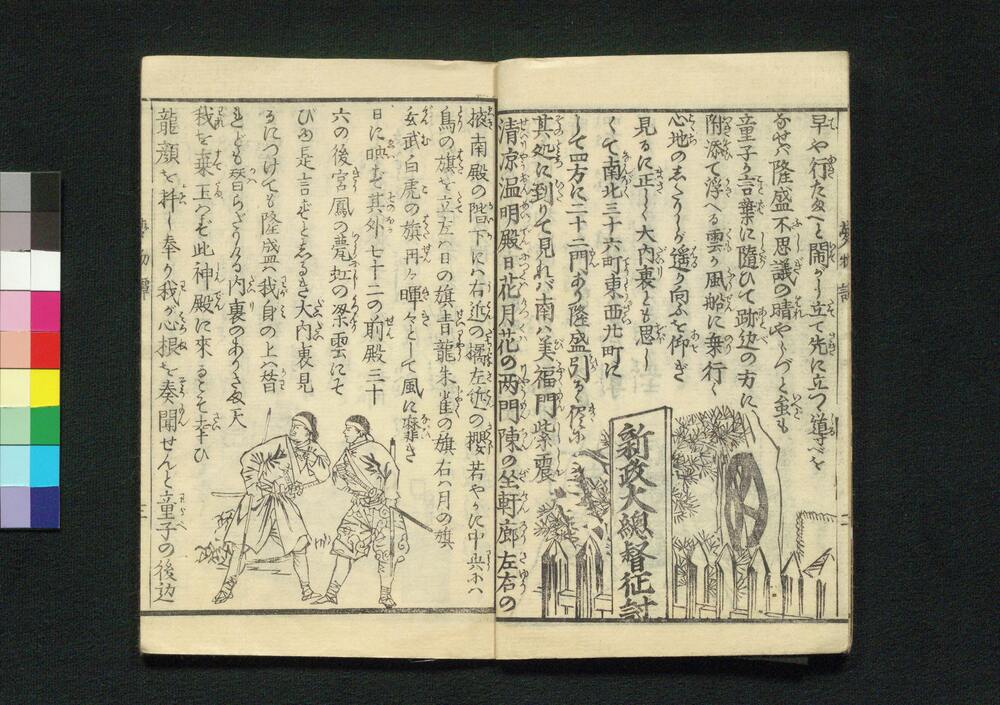 早や行たまへと閙がし立て先に立つ導べを
なせバ隆盛不思議の晴やらずと虽も
童子が言葉に隨ひて跡辺の方に
附添て浮へる雲か風船に乗行く
心地のしたりしが遥か向ふを仰ぎ
見るに正しく大内裏とも思しく
て南北三十六町東西九町に
して四方に二十二門あり隆盛引るゝ儘に
其処に到りて見れバ南ハ美福門紫震
清凉温明殿日花月花の两門陳の坐軒廊左右の
新政大總督征討
掖南殿の階下にハ右近の橘左近の櫻若やかに中央にハ
鳥の旗を立左ハ日の旗青龍朱雀の旗右ハ月の旗
玄武白虎の旗冉々暉々として風に靡き
日に映ず其外七十二の前殿三十
六の後宮鳳の甍虹の梁雲にそ
びゆ是言ずとしるき大内裏見
るにつけても隆盛ハ我身の上ハ昔
我を棄玉ハず此神殿に來ることそ幸ひ
龍顔を拝し奉り我が心根を奏聞せんと童子の後辺